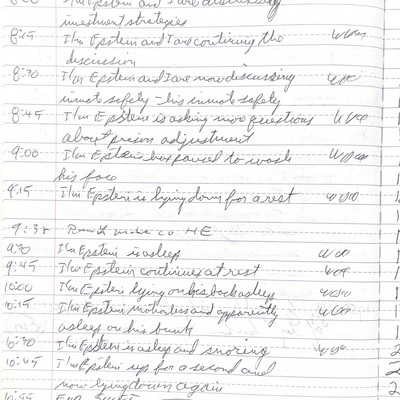 I/m Epstein and I are discussing
investment strategies
8:15 I/m Epstein and I are continuing the
discussion
8:30 I/m Epstein and I are now discussing
inmate safety - his inmate safety
8:45 I/m Epstein is asking more questions
about prison adjustment
9:00 I/m Epstein has paused to wash
his face
9:15 I/m Epstein is lying down for a rest
9:35 Round made co
9:30 I/m Epstein is asleep
9:45 I/m Epstein continues at rest
10:00 I/m Epstein lying on his back asleep
10:15 I/m Epstein motionless and apparently
asleep on his bunk
10:30 I/m Epstein is asleep and snoring
10:45 I/m Epstein ups for a second and
now lying down again